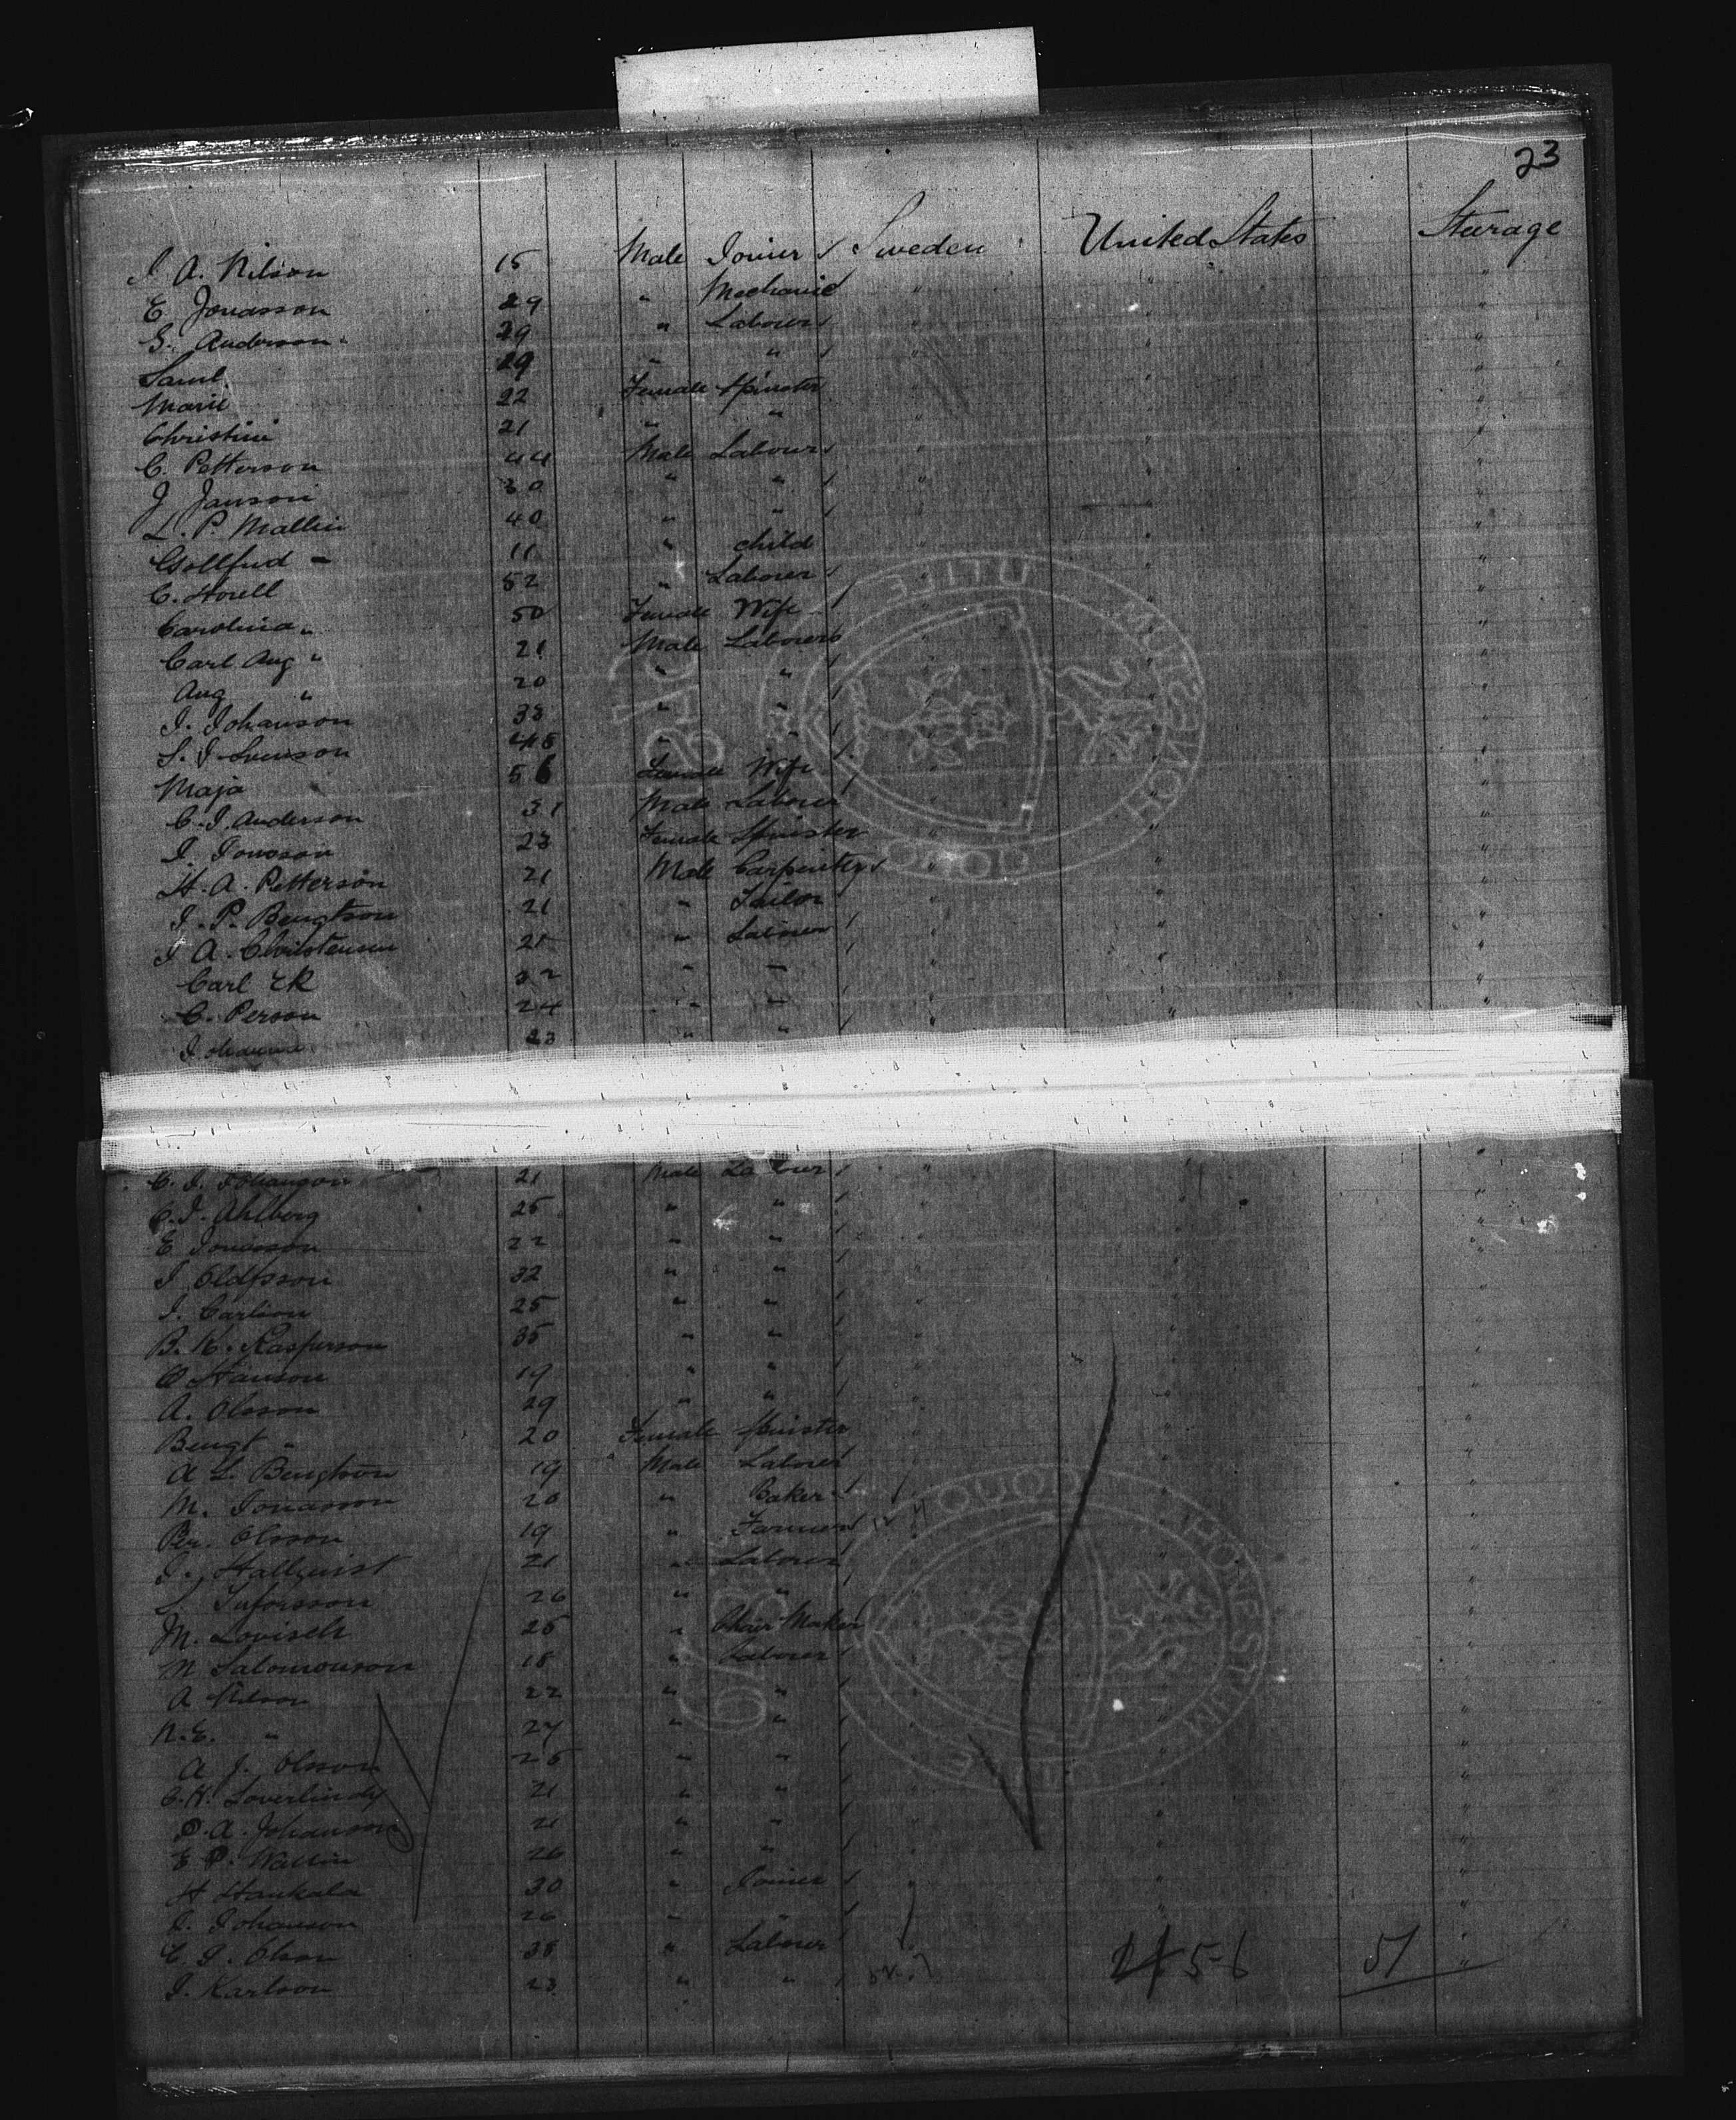 23
J A. Nilson 15 Male Joiner Sweden United States Steerage
E Jonasson 29 " Mechanic " " "
G. Anderson 29 " Labourer " " "
Saml. 29 " " " " "
Marie 22 Female Spinster " " "
Christine 21 " " " " "
C. Petterson 44 Male Labourer " " "
J Janson 30 " " " " "
L. P. Mallin 40 " " " " "
11 " child " " "
C. Horell 52 " Laborer " " "
Carolina " 50 Female Wife " " "
Carl Aug " 21 Male Laborer " " "
Aug " 20 " " " " "
J. Johanson 38 " " " " "
S. J. Svenson 45 " " " " "
Maja 56 Female Wife " " "
C. J. Anderson 31 Male Laborer " " "
J. Jonsson 23 Female Spinster " " "
H. A. Petterson 21 Male Carpenter " " "
J. P. Bengtson 21 " Tailor " " "
J A. Christensen 21 " Laborer " " "
Carl Ek 32 " " " " "
C. Person 24 " " " " "
Johanna 23 " "
C. J. Johanson 21 Male Labourer " " "
C. J. Ahlberg 25 " " " " "
E Jonasson 22 " " " " "
J. 32 " " " " "
J. Carlson 25 " " " " "
B. K. Kasperson 35 " " " " "
O Hanson 19 " " " " "
A. Olsson 29 " " " " "
Bengt " 20 Female Spinster " " "
A L. Bengtson 19 Male Laborer " " "
M. Jonasson 20 " Baker " " "
Per. Olsson 19 " Farmer " " "
J. Hallquist 21 " Laborer " " "
26 " " " " "
M. Lovisch 25 " Chair Maker " " "
N Salomonson 18 " Laborer " " "
A Nilson 22 " " " " "
N. E. " 27 " " " " "
A J. Olsson 25 " " " " "
C. H. 21 " " " " "
P. A. Johanson 21 " " " " "
E P. Wallin 26 " " " " "
H Hankala 30 " Joiner " " "
J. Johanson 26 " " " " "
C G. Olson 38 " Labourer " " "
J. Karlson 23 " " 56 51 "